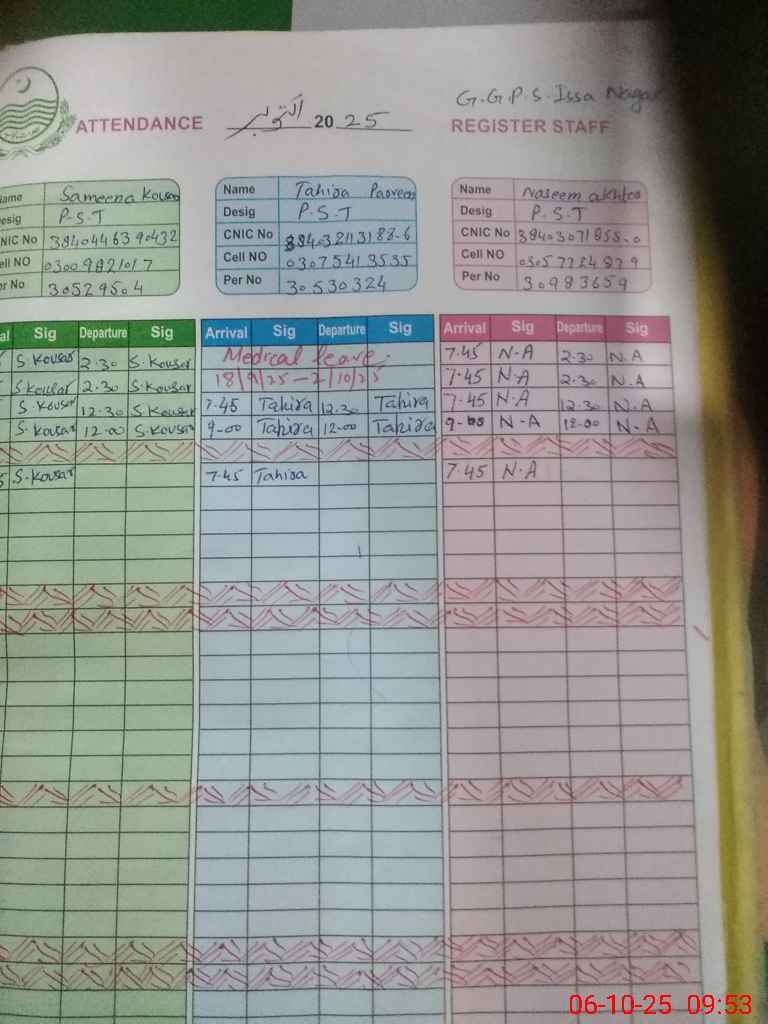 G.G.P.S. Issa Nagar
ATTENDANCE اکتوبر 2025 REGISTER STAFF
ame Sameena Kousar
esig P-S-T
NIC No
ell NO 03009821017
er No 30529504
Name Tahira Parveen
Desig P.S.T
CNIC No
Cell NO 03075413535
Per No 30530324
Name Naseem akhtar
Desig P.S.T
CNIC No 38403071855-0
Cell NO
Per No 30983659
al Sig Departure Sig Arrival Sig Departure Sig Arrival Sig Departure Sig
S.Kousar 2.30 S.Kousar Medical leave. 7.45 N-A 2-30 N.A
S.Kousar 2.30 S.Kousar 18/9/25 - 2/10/25 7.45 N-A 2-30 N.A
S.Kousar 12.30 S.Kousar 7-45 Tahira 12.30 Tahira 7.45 N-A 12-30 N.A
S.Kousar 12.00 S.Kousar 9-00 Tahira 12-00 Tahira 9-00 N-A 12-00 N-A
S.Kousar 7.45 Tahira 7.45 N-A
06-10-25 09:53